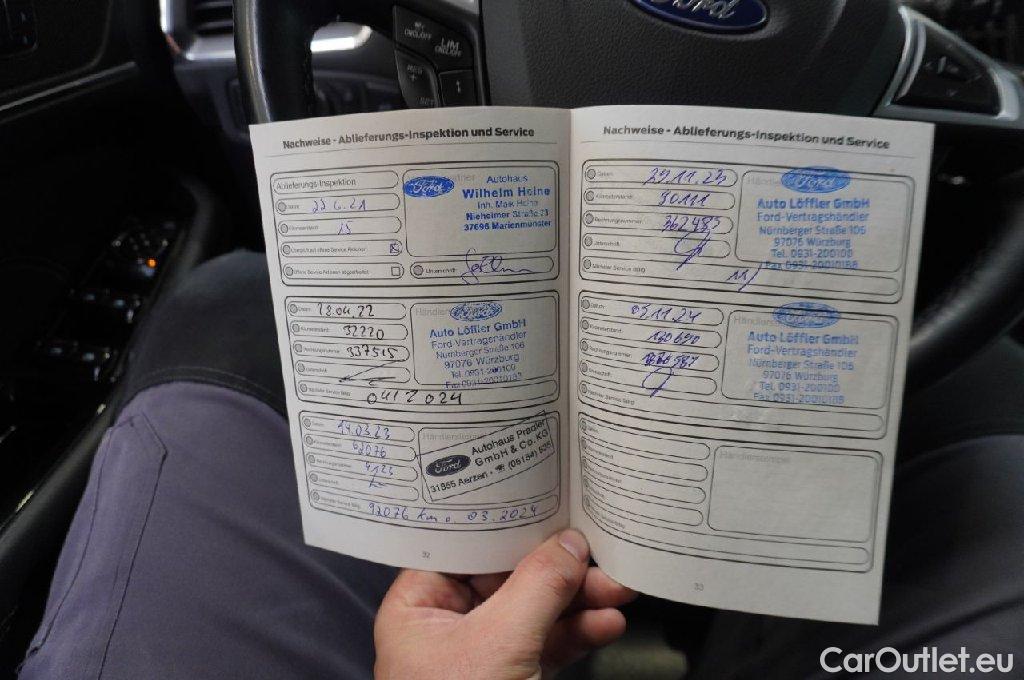 Ford
LIM
SET
Nachweise - Ablieferungs-Inspektion und Service
Ablieferungs-Inspektion
Datum
23.6.21
Kilometerstand
15
Unterschrift
Ford
Autohaus
Wilhelm Heine
Inh. Maik Heine
Nieheimer Straße 23
37696 Marienmünster
Datum
28.04.22
Kilometerstand
32220
Rechnungsnummer
337515
Unterschrift
Nächster Service fällig
04/2024
Ford
Auto Löffler GmbH
Ford-Vertragshändler
Nürnberger Straße 106
97076 Würzburg
Tel. 0931-200100
Fax 0931-20010188
Datum
14.03.23
Kilometerstand
62076
Rechnungsnummer
Unterschrift
Nächster Service fällig
92076 km o. 03.2024
Ford
Autohaus Pradler
GmbH & Co. KG
31855 Aerzen
32
Nachweise - Ablieferungs-Inspektion und Service
Datum
29.11.23
Kilometerstand
90111
Rechnungsnummer
362485
Unterschrift
Nächster Service fällig
Ford
Auto Löffler GmbH
Ford-Vertragshändler
Nürnberger Straße 106
97076 Würzburg
Tel. 0931-200100
Fax 0931-20010188
Datum
05.11.24
Kilometerstand
120690
Rechnungsnummer
Unterschrift
Nächster Service fällig
Ford
Auto Löffler GmbH
Ford-Vertragshändler
Nürnberger Straße 106
97076 Würzburg
Tel. 0931-200100
Fax 0931-20010188
Händlerstempel
33
CarOutlet.eu